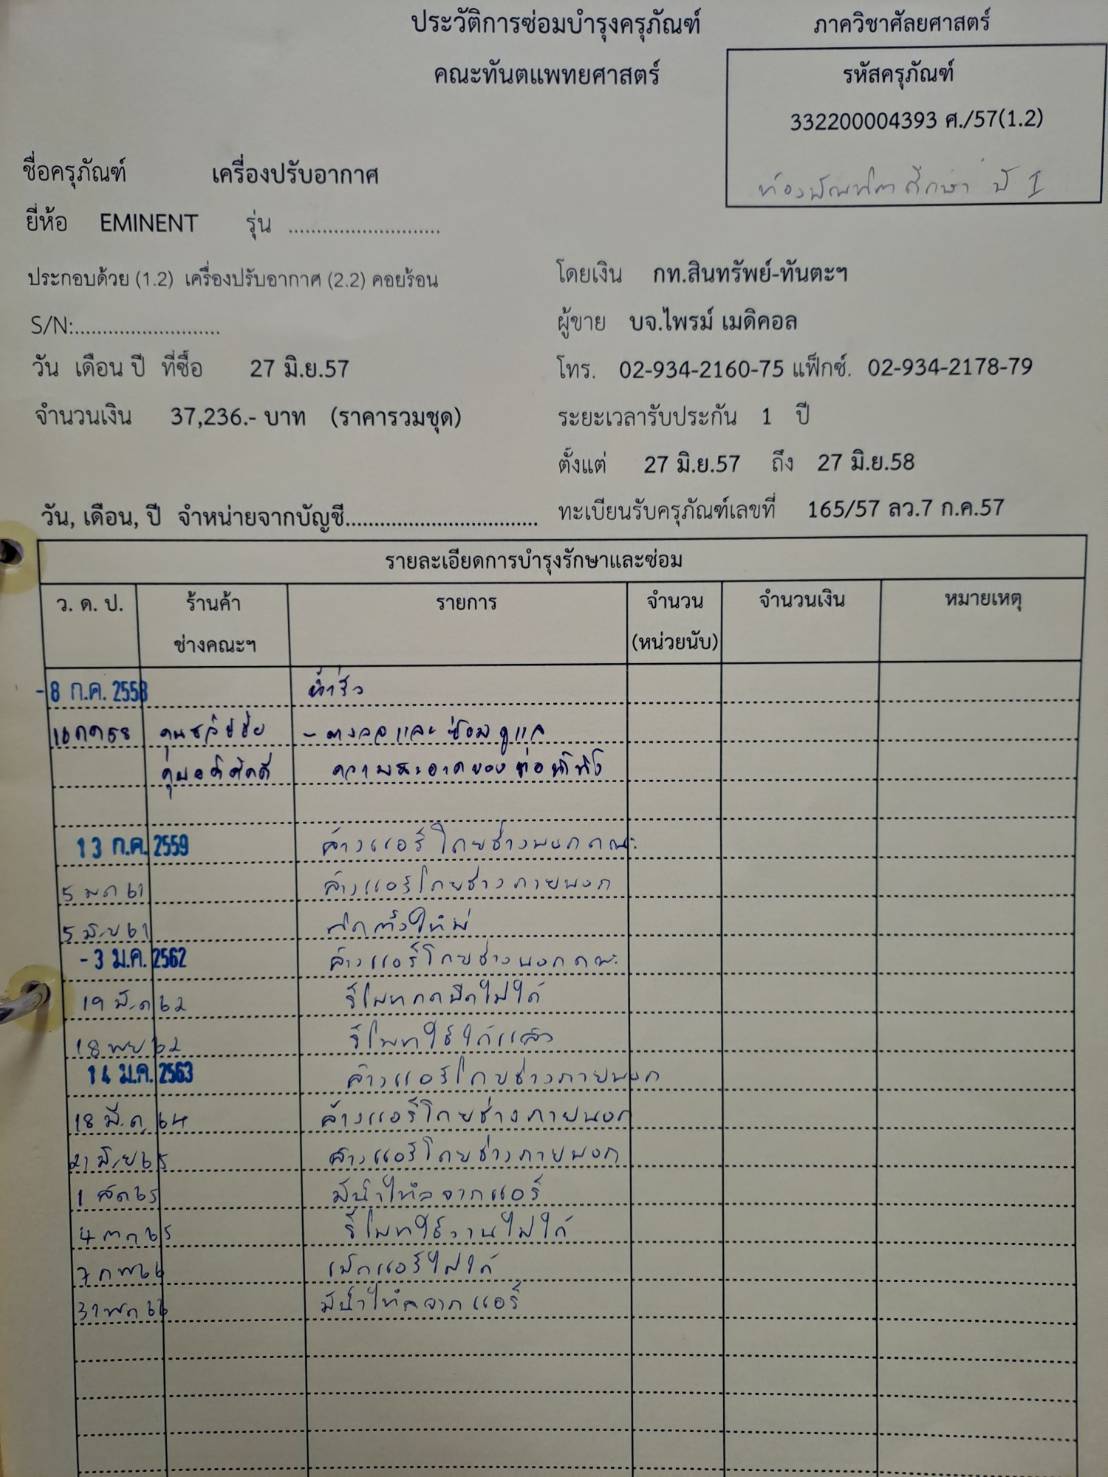 ประวัติการซ่อมบำรุงครุภัณฑ์ ภาควิชาศัลยศาสตร์
คณะทันตแพทยศาสตร์
รหัสครุภัณฑ์
332200004393 ศ./57(1.2)
ห้องบัณฑิตศึกษา ปี I
ชื่อครุภัณฑ์ เครื่องปรับอากาศ
ยี่ห้อ EMINENT รุ่น ............................
ประกอบด้วย (1.2) เครื่องปรับอากาศ (2.2) คอยร้อน โดยเงิน กท.สินทรัพย์-ทันตะฯ
S/N:.......................... ผู้ขาย บจ.ไพรม์ เมดิคอล
วัน เดือน ปี ที่ซื้อ 27 มิ.ย.57 โทร. 02-934-2160-75 แฟ็กซ์. 02-934-2178-79
จำนวนเงิน 37,236.- บาท (ราคารวมชุด) ระยะเวลารับประกัน 1 ปี
ตั้งแต่ 27 มิ.ย.57 ถึง 27 มิ.ย.58
วัน, เดือน, ปี จำหน่ายจากบัญชี................................... ทะเบียนรับครุภัณฑ์เลขที่ 165/57 ลว.7 ก.ค.57
รายละเอียดการบำรุงรักษาและซ่อม
ว. ด. ป. ร้านค้า รายการ จำนวน จำนวนเงิน หมายเหตุ
ช่างคณะฯ (หน่วยนับ)
-8 ก.ค. 2558 น้ำรั่ว
- ตรวจ และ ซ่อม ดูแล
ความสะอาดของ ท่อน้ำทิ้ง
13 ก.ค. 2559 ล้างแอร์โดยช่างนอกคณะ
5 มค 61 ล้างแอร์โดยช่างภายนอก
5 มิย 61 ติดตั้งใหม่
-3 ม.ค. 2562 ล้างแอร์โดยช่างนอกคณะ
19 มีค 62 รีโมทกดปิดไม่ได้
18 พย 62 รีโมทใช้ได้แล้ว
14 ม.ค. 2563 ล้างแอร์โดยช่างภายนอก
18 มี.ค. 64 ล้างแอร์โดยช่างภายนอก
21 มิย 65 ล้างแอร์โดยช่างภายนอก
1 สค 65 มีน้ำไหลจากแอร์
4 ตค 65 รีโมทใช้งานไม่ได้
7 กพ 66 เปิดแอร์ไม่ได้
31 พค 66 มีน้ำไหลจากแอร์